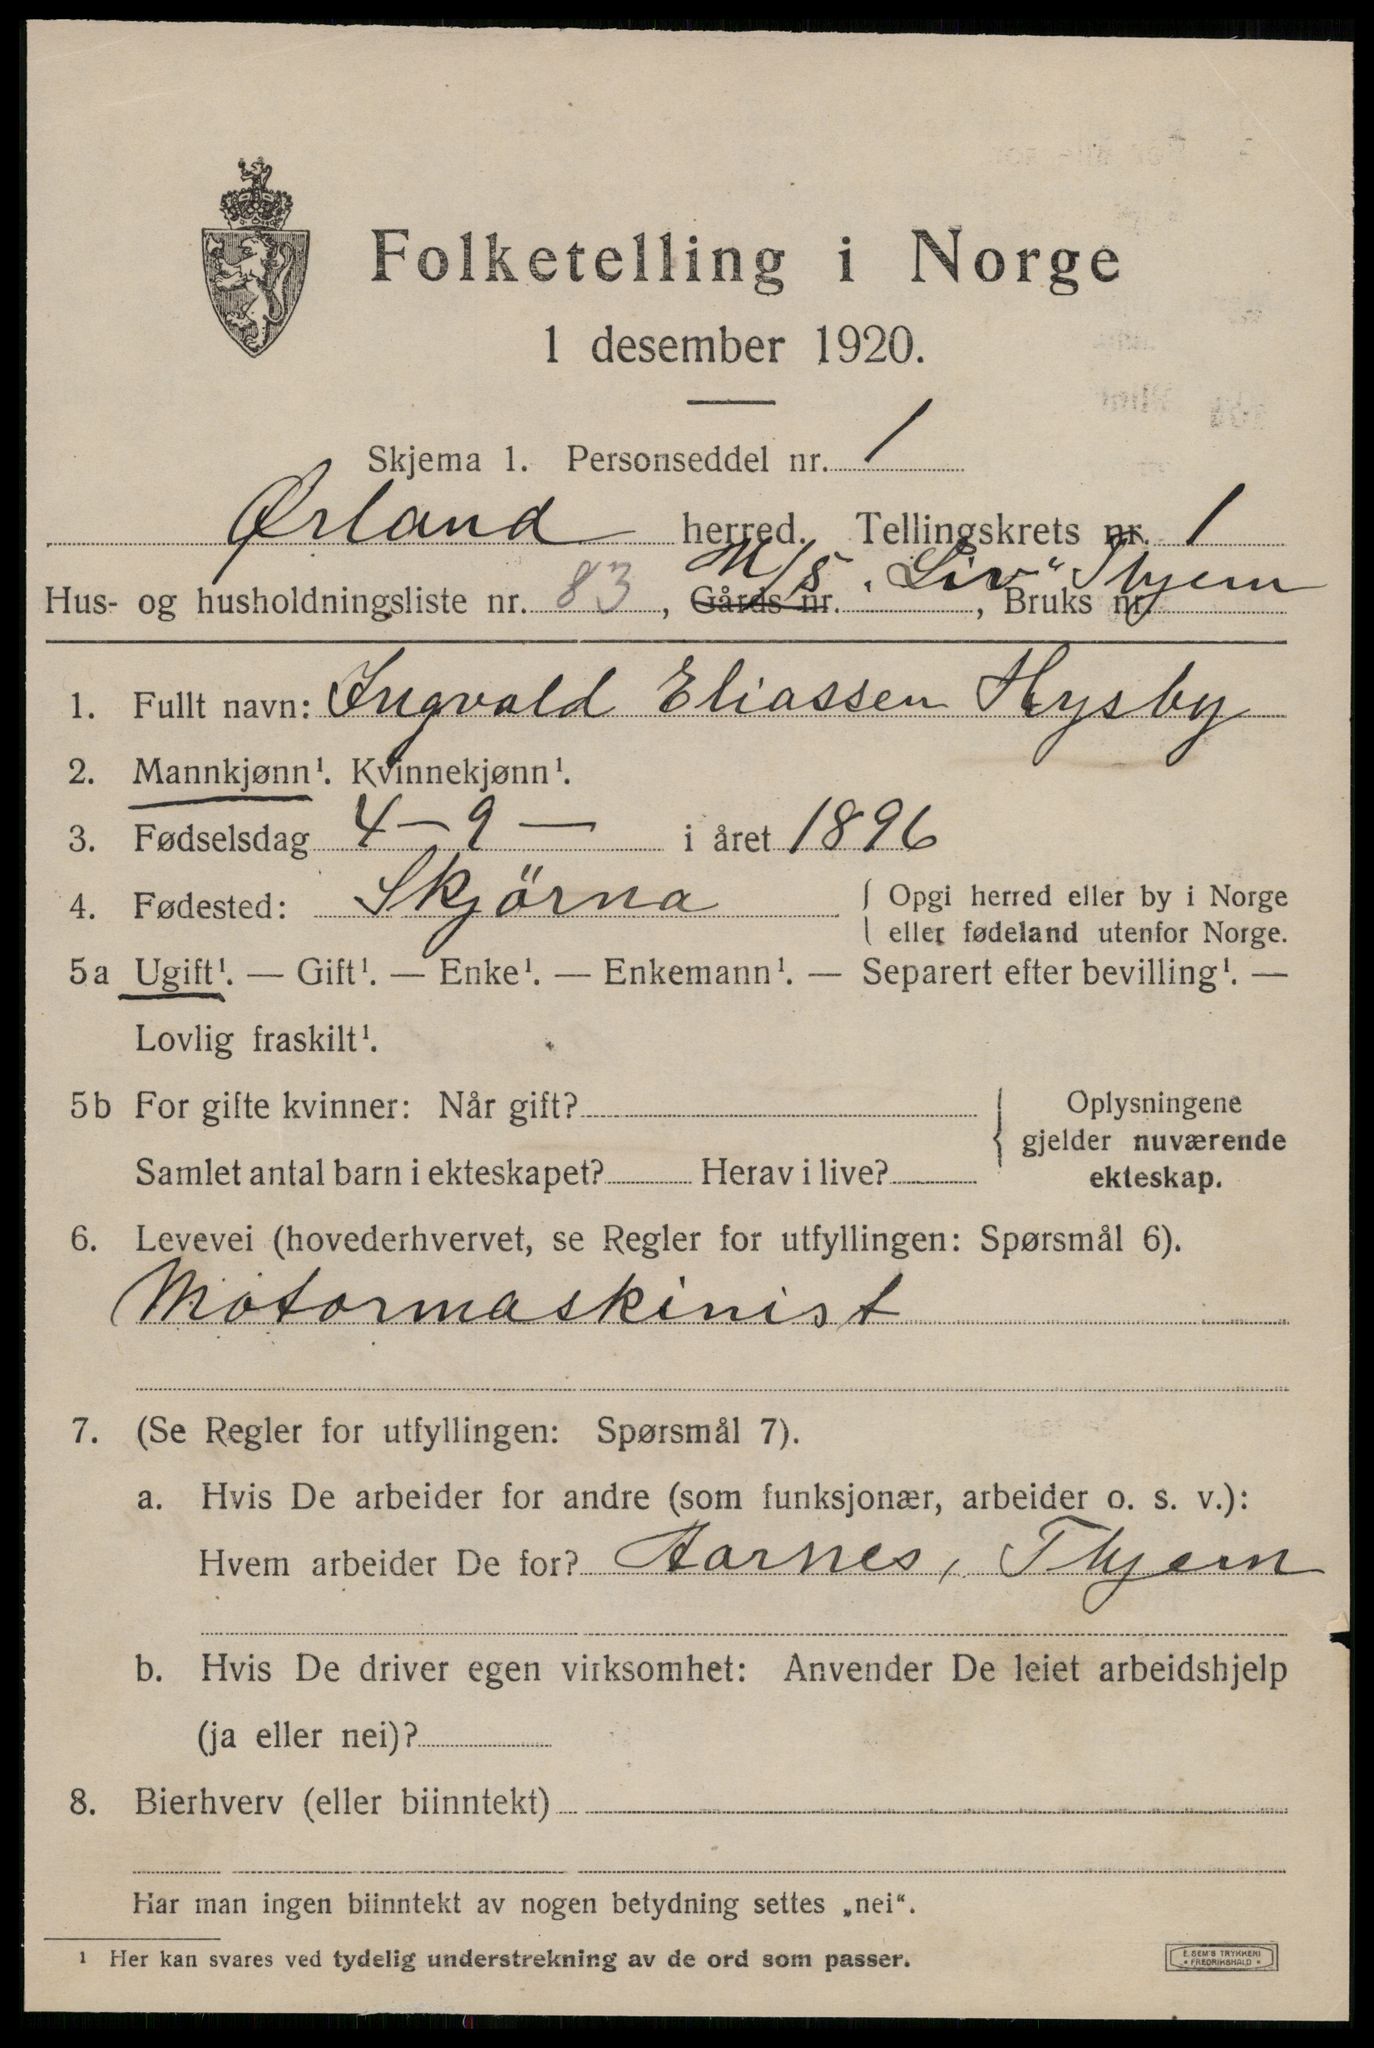 Folketelling i Norge
1 desember 1920.
Skjema 1. Personseddel nr. 1
Ørland herred. Tellingskrets nr. 1
M/S „Liv“ Thjem
Hus- og husholdningsliste nr. 83, Gårds nr. , Bruks nr.
1. Fullt navn: Ingvald Eliassen Hysby
2. Mannkjønn¹. Kvinnekjønn¹.
3. Fødselsdag 4-9- i året 1896
4. Fødested: Skjörna { Opgi herred eller by i Norge
eller fødeland utenfor Norge.
5a Ugift¹. — Gift¹. — Enke¹. — Enkemann¹. — Separert efter bevilling¹. —
Lovlig fraskilt¹.
5b For gifte kvinner: Når gift? { Oplysningene
gjelder nuværende
Samlet antal barn i ekteskapet? Herav i live? ekteskap.
6. Levevei (hovederhvervet, se Regler for utfyllingen: Spørsmål 6).
Motormaskinist
7. (Se Regler for utfyllingen: Spørsmål 7).
a. Hvis De arbeider for andre (som funksjonær, arbeider o. s. v.):
Hvem arbeider De for? Aarnes, Thjem
b. Hvis De driver egen virksomhet: Anvender De leiet arbeidshjelp
(ja eller nei)?
8. Bierhverv (eller biinntekt)
Har man ingen biinntekt av nogen betydning settes „nei“.
¹ Her kan svares ved tydelig understrekning av de ord som passer.
E. SEM'S TRYKKERI
* FREDRIKSHALD *